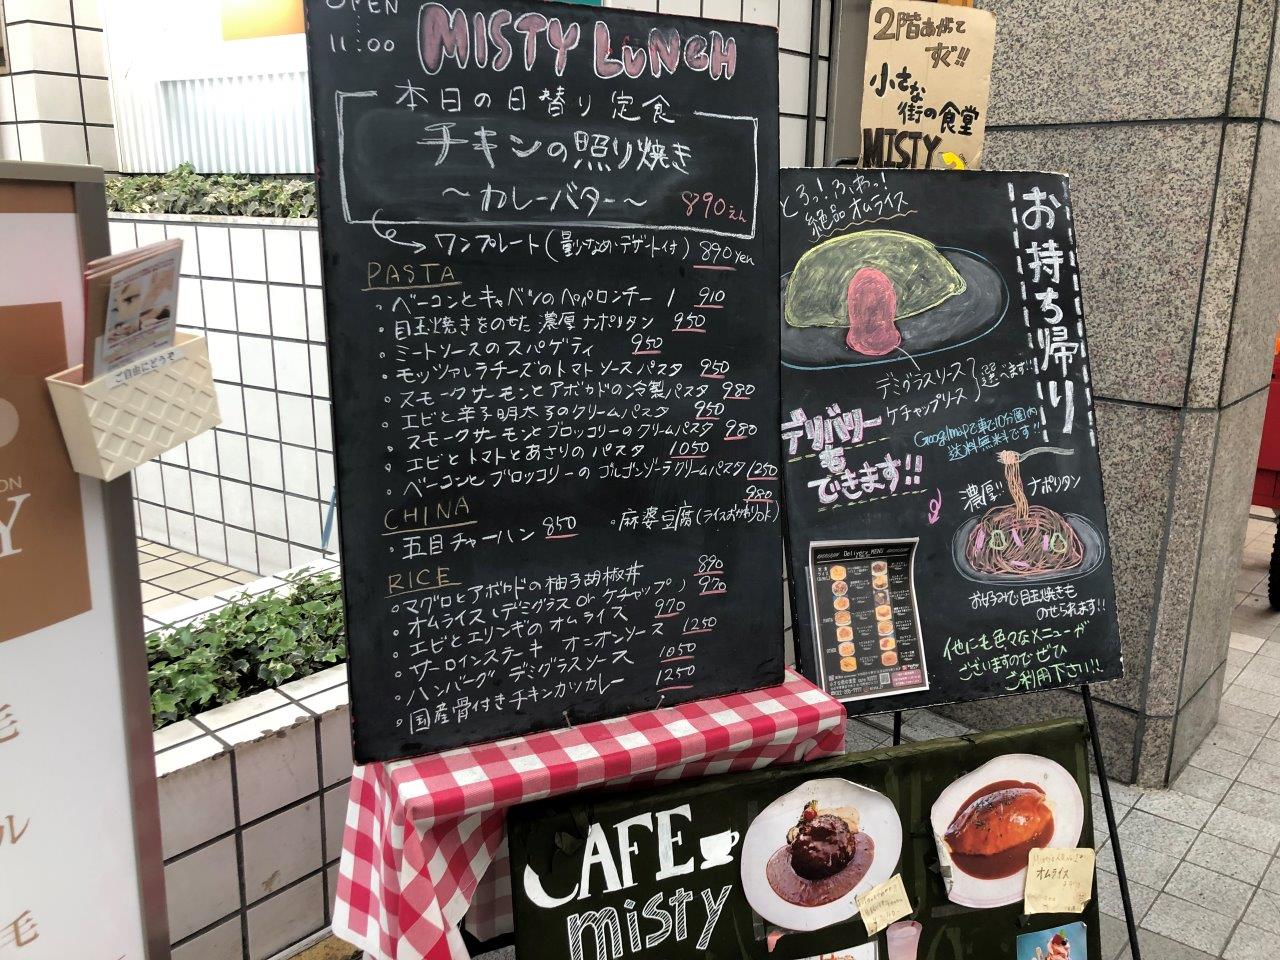 OPEN
11:00
MISTY LUNCH
本日の日替り定食
チキンの照り焼き
～カレーバター～ 890えん
ワンプレート(量少なめ・デザート付) 890yen
PASTA
・ベーコンとキャベツのペペロンチーノ 910
・目玉焼きをのせた濃厚ナポリタン 950
・ミートソースのスパゲティ 950
・モッツァレラチーズのトマトソースパスタ 950
・スモークサーモンとアボカドの冷製パスタ 980
・エビと辛子明太子のクリームパスタ 950
・スモークサーモンとブロッコリーのクリームパスタ 980
・エビとトマトとあさりのパスタ 1050
・ベーコンとブロッコリーのゴルゴンゾーラクリームパスタ 1250
CHINA
・五目チャーハン 850
・麻婆豆腐(ライスおかわり 980
RICE
・マグロとアボカドの柚子胡椒丼 890
・オムライス(デミグラス or ケチャップ) 970
・エビとエリンギのオムライス 970
・サーロインステーキ オニオンソース 1250
・ハンバーグ デミグラスソース 1050
・国産骨付きチキンカツカレー 1250
2階あがって
すぐ!!
小さな
街の食堂
MISTY
お持ち帰り
とろっ!ふわっ!
絶品オムライス
デミグラスソース
ケチャップソース
選べます!!
デリバリー
も
できます!!
Googlmapで車で10分圏内
送料無料です!!
濃厚!! ナポリタン
お好みで目玉焼きも
のせられます!!
他にも色々なメニューが
ございますのでぜひ
ご利用下さい!!
Delivery MENU
CAFE
misty
オムライス
ご自由にどうぞ
ON
Y
毛
ル
毛